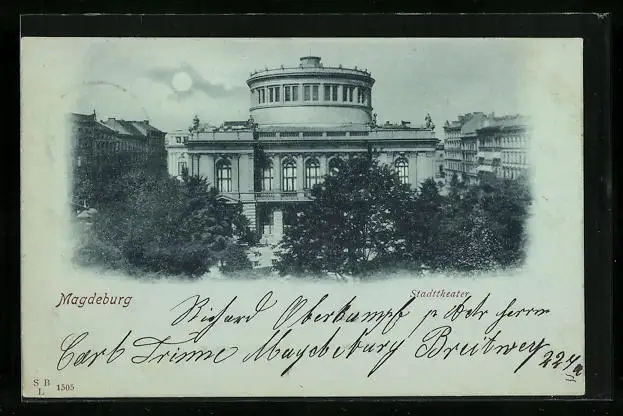 Magdeburg
Stadttheater.
Richard Oberkampf p Adr herrn
Carl Trinne Magdeburg Breitwey 224a
S B
L 1505